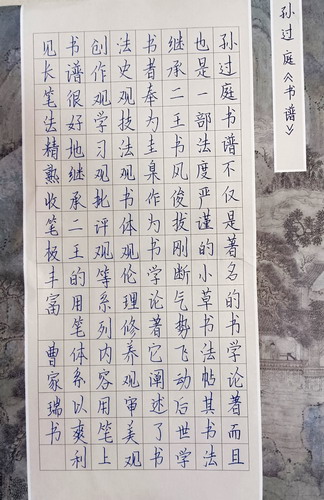 孙过庭《书谱》
孙过庭书谱不仅是著名的书学论著而且
也是一部法度严谨的小草书法帖其书法
继承二王书风俊拔刚断气势飞动后世学
书者奉为圭臬作为书学论著它阐述了书
法史观技法观书体观伦理修养观审美观
创作观学习观批评观等系列内容用笔上
书谱很好地继承二王的用笔体系以爽利
见长笔法精熟收笔极丰富 曹家瑞书